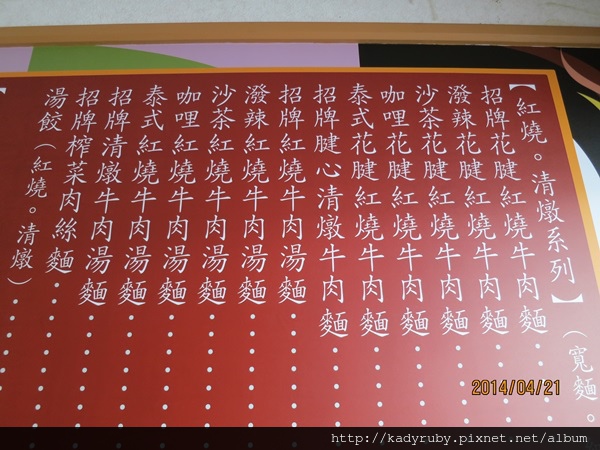 【紅燒。清燉系列】（寬麵。
招牌花腱紅燒牛肉麵
潑辣花腱紅燒牛肉麵
沙茶花腱紅燒牛肉麵
咖哩花腱紅燒牛肉麵
泰式花腱紅燒牛肉麵
招牌腱心清燉牛肉麵
招牌紅燒牛肉湯麵
潑辣紅燒牛肉湯麵
沙茶紅燒牛肉湯麵
咖哩紅燒牛肉湯麵
泰式紅燒牛肉湯麵
招牌清燉牛肉湯麵
招牌榨菜肉絲麵
湯餃（紅燒。清燉）
【
2014/04/21
http://kadyruby.pixnet.net/album